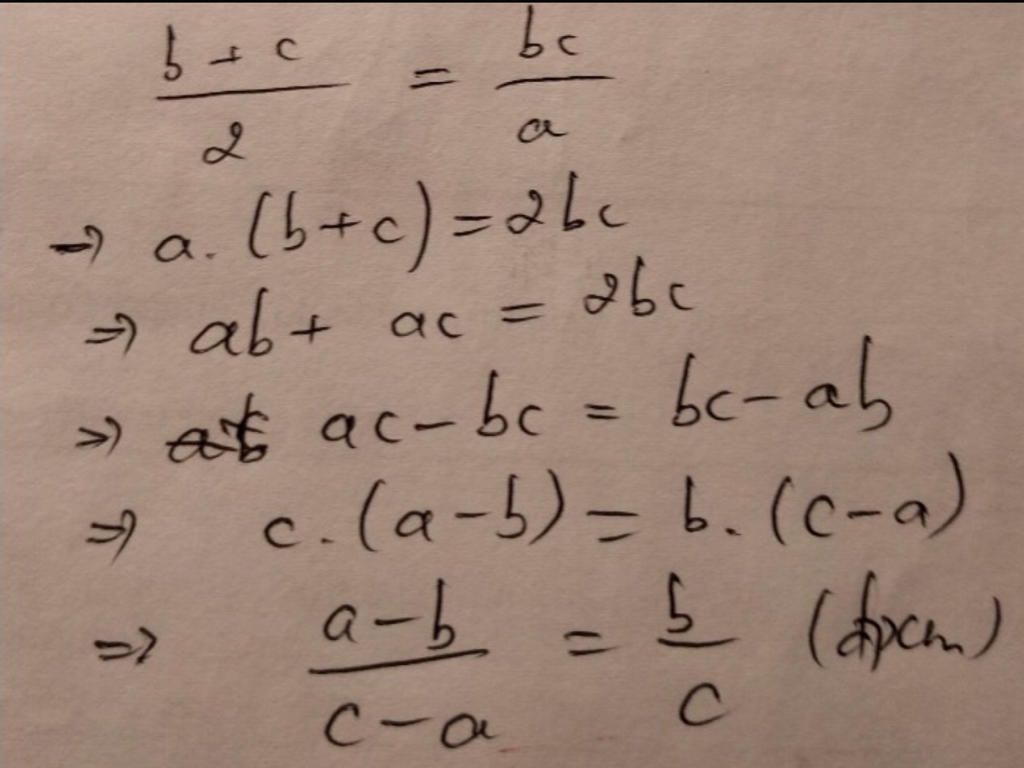 b + c / 2 = bc / a
⇒ a. (b+c) = 2bc
⇒ ab + ac = 2bc
⇒ ac - bc = bc - ab
⇒ c. (a - b) = b. (c - a)
⇒ a - b / c - a = b / c (đpcm)